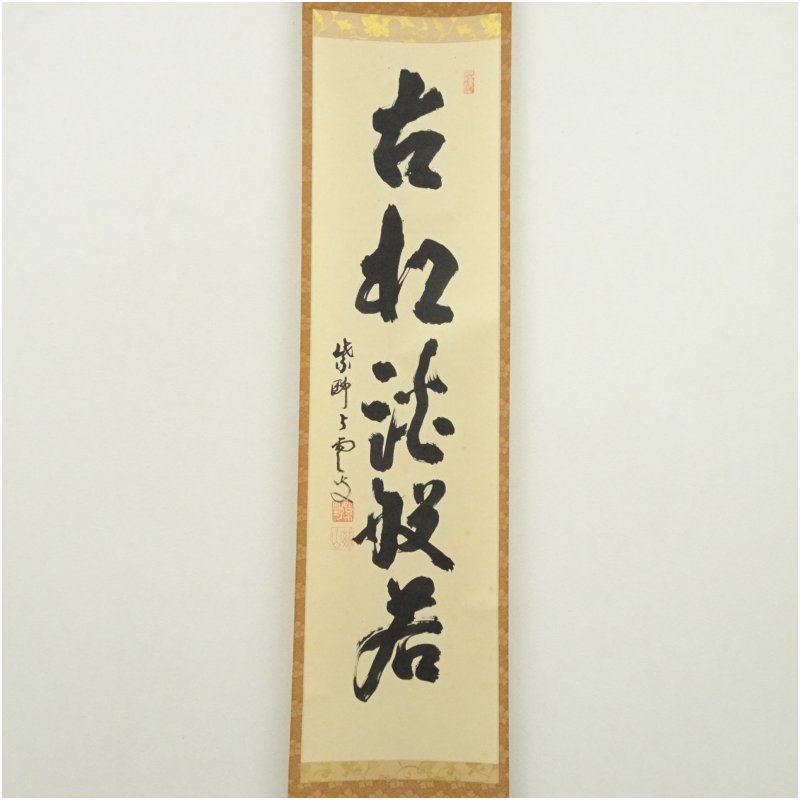 古松談般若
紫野